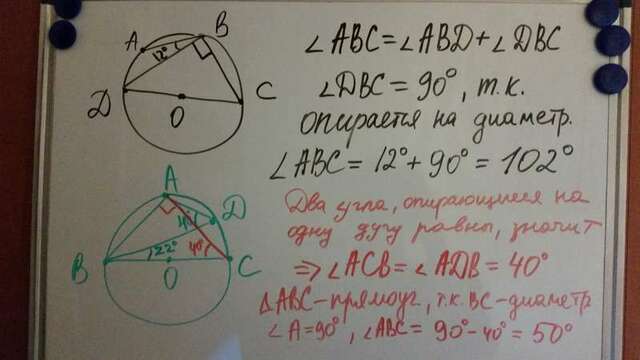 A
B
12°
D
O
C
∠ABC=∠ABD+∠DBC
∠DBC=90°, т.к.
опирается на диаметр.
∠ABC=12°+90°=102°
A
D
40°
22°
40°
B
O
C
Два угла, опирающиеся на
одну дугу равны, значит
⇒∠ACB=∠ADB=40°
△ABC-прямоуг, т.к. BC-диаметр
∠A=90°, ∠ABC=90°-40°=50°